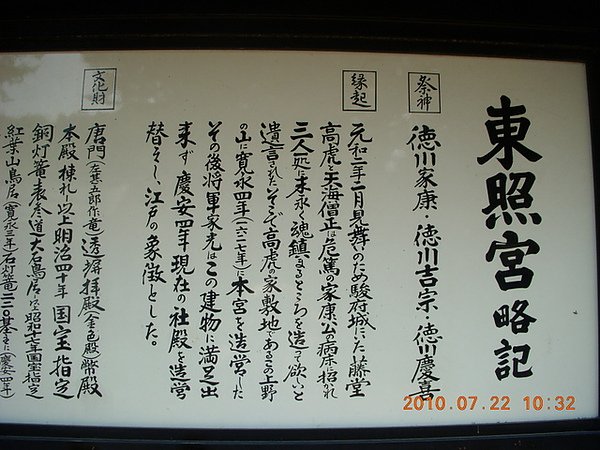 東照宮略記
祭神
徳川家康・徳川吉宗・徳川慶喜
縁起
元和二年二月見舞のため駿府城にいた藤堂
高虎と天海僧正は危篤の家康公の病床に招かれ
三人一処に末永く魂鎮まるところを造って欲しいと
遺言されたにそこで高虎の家敷地であるこの上野
の山に寛永四年(一六二七年)に本宮を造営した
その後将軍家光はこの建物に満足出
来ず慶安四年現在の社殿を造営
替えし、江戸の象徴とした。
文化財
唐門(左甚五郎作竜)透塀拝殿(金色殿)幣殿
本殿棟札以上明治四十年国宝指定
銅灯篭表参道大石鳥居以上昭和十七年国宝指定
紅葉山鳥居(寛永三年)石灯篭二二〇基(慶安四年)
2010.07.22 10:32